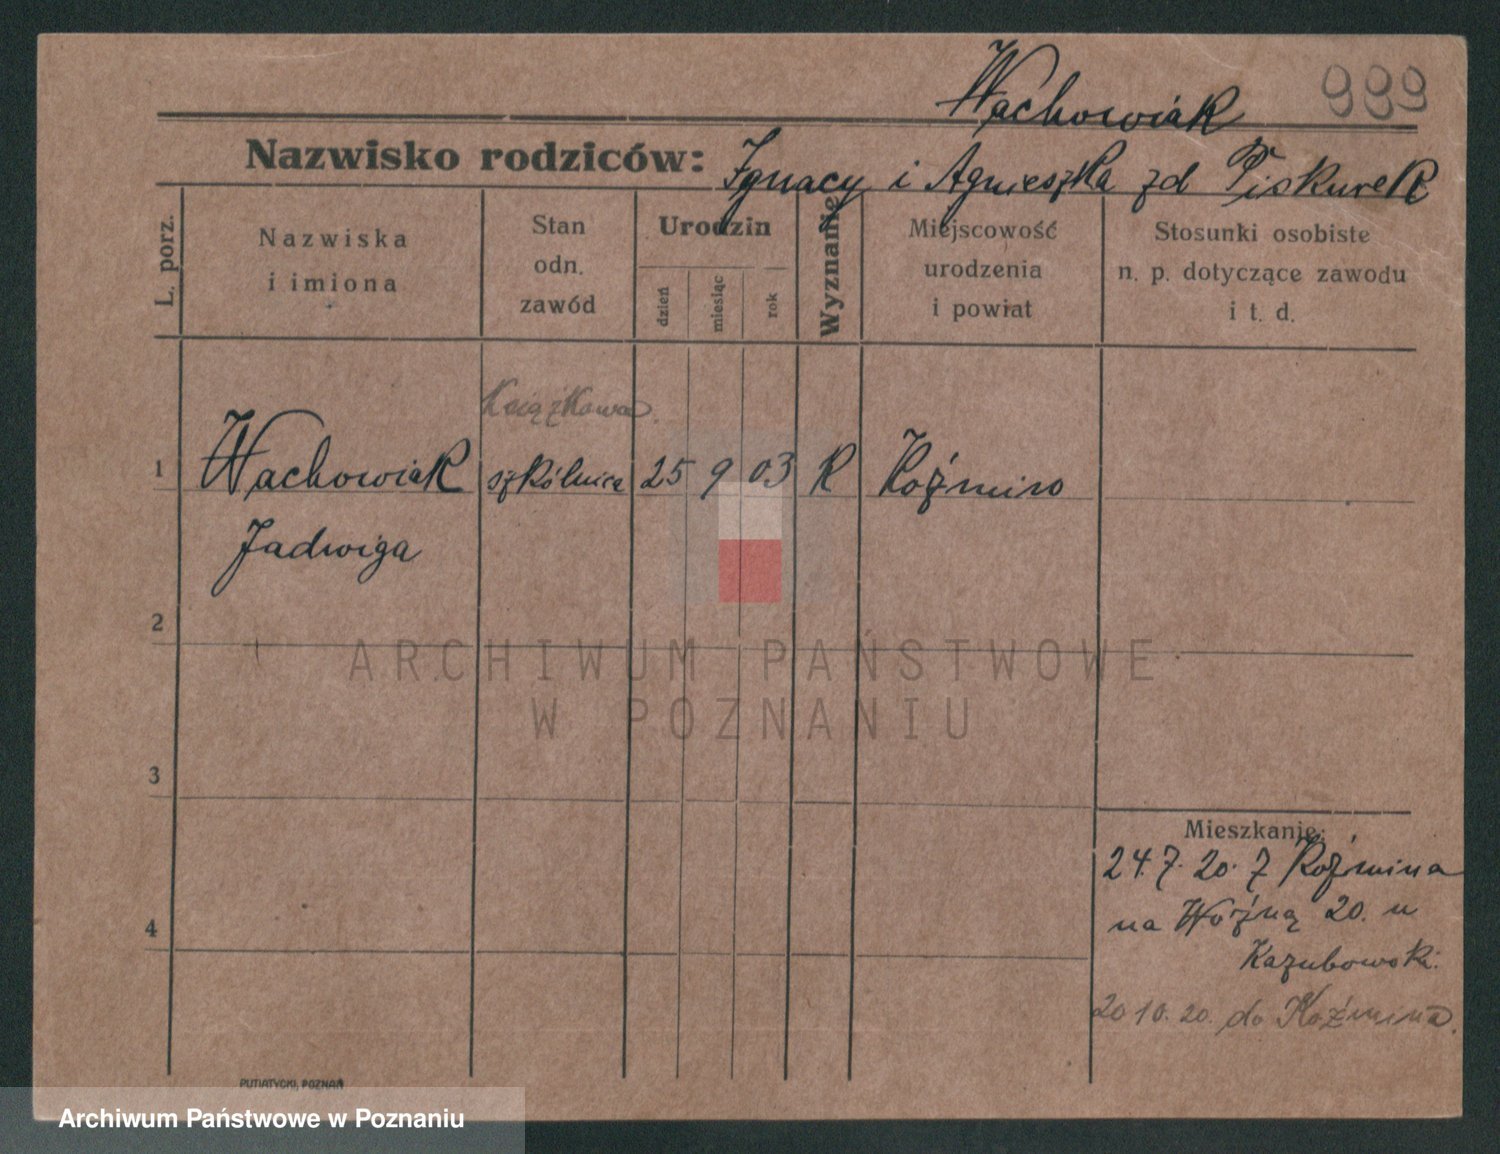 Wachowiak 999
Nazwisko rodziców: Ignacy i Agnieszka zd Piskurek
L. porz.
Nazwiska
i imiona
Stan
odn.
zawód
Urodzin
dzień miesiąc rok
Wyznanie
Miejscowość
urodzenia
i powiat
Stosunki osobiste
n. p. dotyczące zawodu
i t. d.
Książkowa.
1 Wachowiak szkólnica 25 9 03 R Koźmin
Jadwiga
2
ARCHIWUM PAŃSTWOWE
W POZNANIU
3
Mieszkanie:
24.7.20. Z Koźmina
4 na Woźną 20. u
Kazubowski.
20 10. 20. do Koźmina.
PUTIATYCKI, POZNAŃ
Archiwum Państwowe w Poznaniu